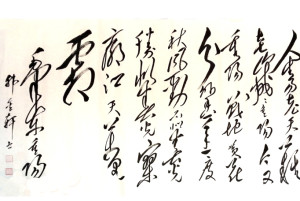 人生易老天难
老岁岁重阳今又
重阳战地黄花
分外香一年一度
秋风劲不似春光
胜似春光寥
廓江天万里
霜
毛泽东重阳